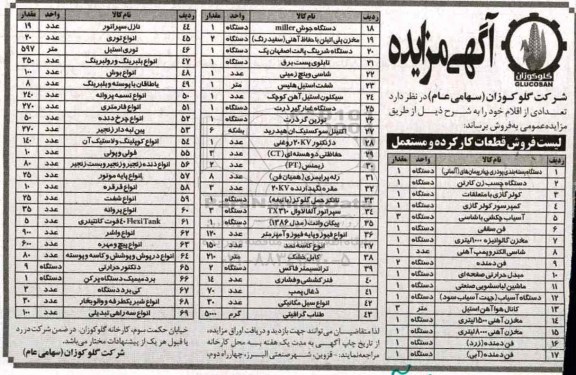 آگهی مزایده
گلوکوزان
GLUCOSAN
شرکت گلوکوزان (سهامی عام) در نظر دارد
تعدادی از اقلام خود را به شرح ذیل از طریق
مزایده عمومی به فروش برساند:
لیست فروش قطعات کار کرده و مستعمل
ردیف نام کالا واحد مقدار
۱ دستگاه بسته بندی پودری چهار پیمانه‌ای (آلمانی) دستگاه ۱
۲ دستگاه چسب زن کارتن دستگاه ۱
۳ کولر گازی با متعلقات دستگاه ۱
۴ کمپرسور کولر گازی دستگاه ۱
۵ آسیاب چکشی با شاسی دستگاه ۳
۶ فن سقفی دستگاه ۱
۷ مخزن گالوانیزه ۱۰۰۰ لیتری دستگاه ۱
۸ شاسی الکتروپمپ آهنی عدد ۱
۹ فن دمنده دستگاه ۲
۱۰ مبدل حرارتی صفحه‌ای دستگاه ۱
۱۱ ماشین لباسشویی صنعتی دستگاه ۱
۱۲ دستگاه آسیاب (جهت آسیاب سود) دستگاه ۱
۱۳ کانال هوا آهن استیل متر ۳
۱۴ مخزن آهنی ۱۵۰۰ لیتری دستگاه ۱
۱۵ مخزن آهنی ۸۰۰۰ لیتری دستگاه ۱
۱۶ فن دمنده (زرد) دستگاه ۱
۱۷ فن دمنده (آبی) دستگاه ۱
ردیف نام کالا واحد مقدار
۱۸ دستگاه جوش miller دستگاه ۱
۱۹ مخزن پلی اتیلن با حفاظ آهنی (سفید رنگ) دستگاه ۲
۲۰ دستگاه شرینگ پالت اصفهان پک دستگاه ۱
۲۱ تابلوی پست برق دستگاه ۱
۲۲ شاسی وینچ زمینی عدد ۱
۲۳ شفت استیل هلیس متر
۲۴ سیکلون استیل آهن کوچک عدد
۲۵ دستگاه غبارگیر ذرت دستگاه ۱
۲۶ بوژین گرد ذرت دستگاه ۱
۲۷ اکتنیل سوکسنیک ان هیدرید بشکه ۶
۲۸ دژنکتور ۲۰KV روغنی عدد ۱
۲۹ حفاظتی دو هسته‌ای (CT) عدد ۳
۳۰ زیمنس (PT) عدد ۲
۳۱ رله پرایمری (همپان فن) عدد ۸
۳۲ مقره نگهدارنده ۲۰KV عدد ۳
۳۳ تانکر حمل گلوکز (باتیغه) دستگاه ۱
۳۴ سپراتور آلفالاوال TX۳۱۰ دستگاه ۳
۳۵ پیکان وانت (مدل ۱۳۸۶) دستگاه ۱
۳۶ انواع فیوز و پایه فیوز و آمپرمتر عدد ۱۲۰
۳۷ نوع کاسه نمد عدد ۱۵۰
۳۸ کابل خشک متر ۲۱۰
۳۹ ترانسمیتر فاکس دستگاه ۲
۴۰ فنر کششی و فشاری عدد ۱۴
۴۱ ذغال پمپ عدد ۷۰
۴۲ انواع سیل مکانیکی عدد ۳۰
۴۳ طناب گرافیتی گرم ۵۰۰۰
ردیف نام کالا واحد مقدار
۴۴ نازل سپراتور عدد ۱۹
۴۵ انواع توری عدد ۲۰
۴۶ توری استیل متر ۵۹۷
۴۷ انواع بلبرینگ و رولبرینگ عدد ۳۵۰
۴۸ انواع بوش عدد ۱۰۰
۴۹ یاطاقان با پوسته و بلبرینگ عدد ۸
۵۰ انواع تسمه پروانه عدد ۲۴۰
۵۱ انواع فلز متری عدد ۲۷۰
۵۲ انواع چرخ دنده عدد ۵۰
۵۳ پین لبه دار زنجیر عدد ۲۷۰
۵۴ انواع کوپلینگ و لاستیک آن عدد ۱۴۰
۵۵ فولی و پولی عدد ۱۰
۵۶ انواع دنده زنجیر و زنجیر و بست زنجیر عدد ۸۰
۵۷ انواع پایه موتور عدد ۲۵
۵۸ انواع قرقره عدد ۱۰
۵۹ انواع شفت عدد ۲۵
۶۰ انواع پروانه عدد ۳۵
۶۱ Flexi Tank ۴۰ فوت کانتینری عدد ۵
۶۲ انواع واشر عدد ۹۰
۶۳ انواع پیچ و مهره عدد ۶۰
۶۴ انواع درپوش و پوشش و کاسه و پوسته عدد ۸۰
۶۵ دتکتور حرارتی دستگاه ۹
۶۶ برد میمیک دستگاه پرکن دستگاه ۱
۶۷ کی برد دستگاه عدد ۳
۶۸ انواع شیر یکطرفه و والو بخار عدد ۳۰
۶۹ انواع سه راهی تبدیلی عدد ۱۰۰
لذا متقاضیان می‌توانند جهت بازدید و دریافت اوراق مزایده،
از تاریخ چاپ آگهی به مدت یک هفته به محل کارخانه
مراجعه نمایند: - قزوین، شهر صنعتی البرز، چهارراه دوم،
خیابان حکمت سوم، کارخانه گلوکوزان. در ضمن شرکت در رد
یا قبول هر یک از پیشنهادات مختار می‌باشد.
شرکت گلوکوزان (سهامی عام)